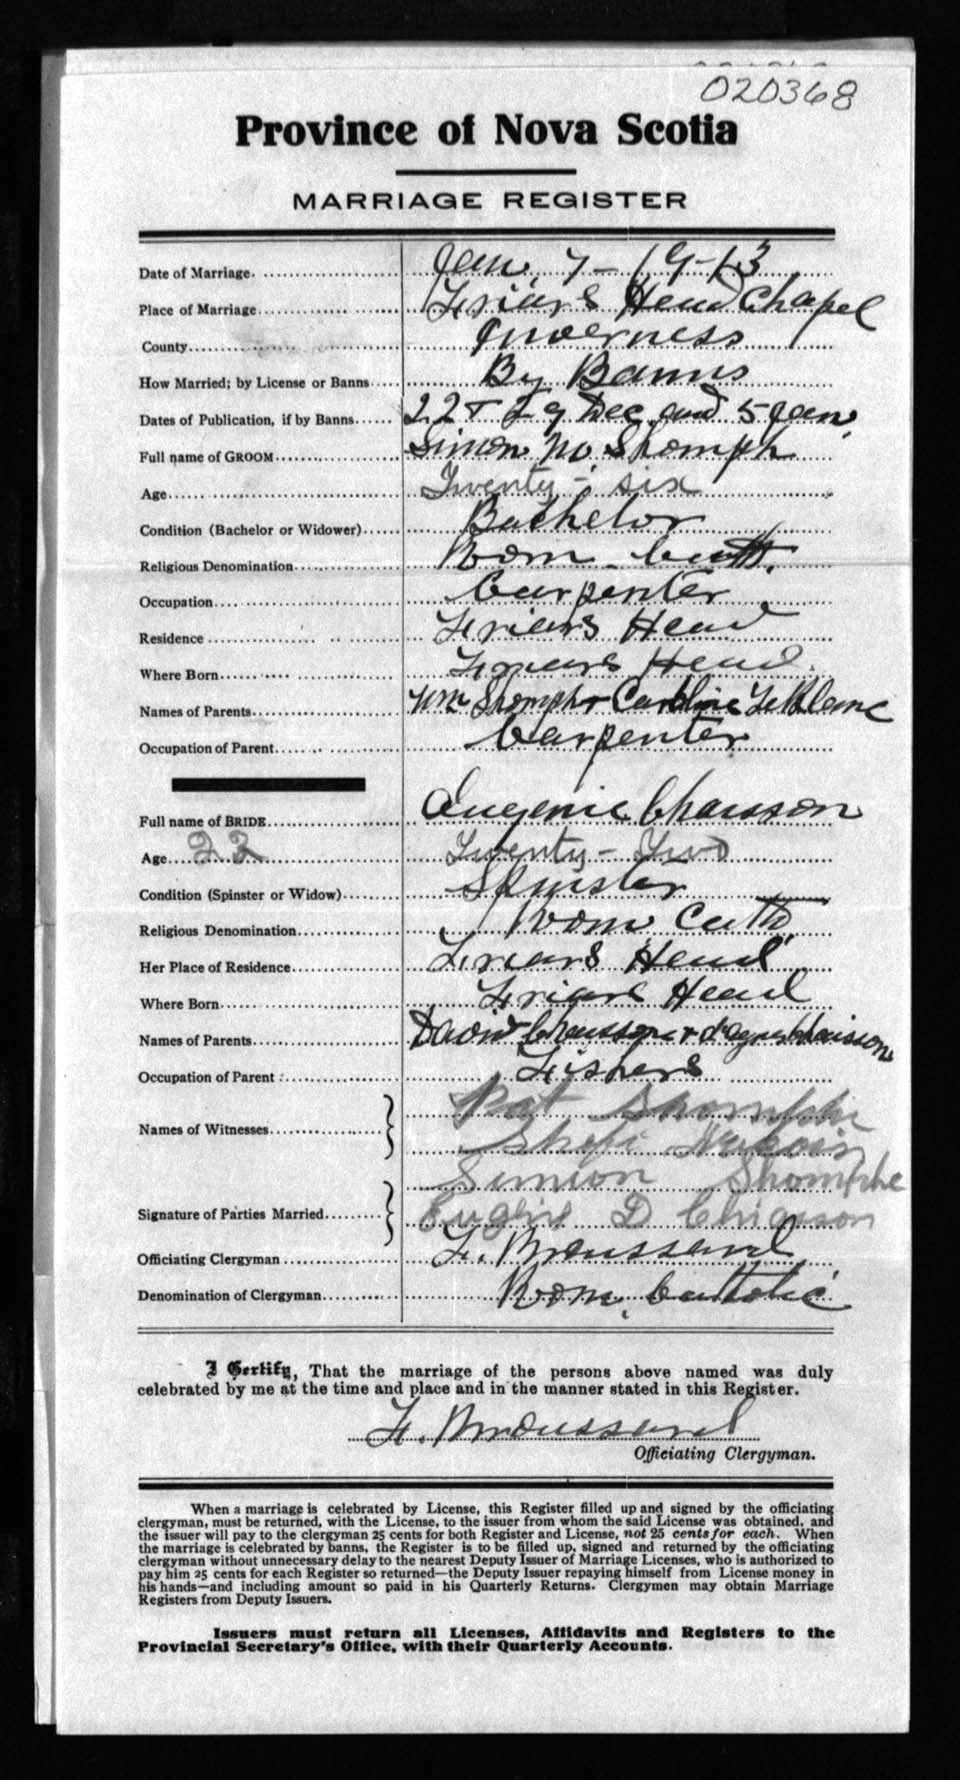 020368
Province of Nova Scotia
MARRIAGE REGISTER
Date of Marriage. Jan. 7 - 19-13
Place of Marriage Friars Head Chapel
County Inverness
How Married; by License or Banns By Banns
Dates of Publication, if by Banns 22 + 29 Dec. and 5 Jan.
Full name of GROOM Simon M. Shomph
Age Twenty-six
Condition (Bachelor or Widower) Bachelor
Religious Denomination Rom. Cath.
Occupation Carpenter
Residence Friars Head
Where Born Friars Head.
Names of Parents Wm Shomph + Caroline LeBlanc
Occupation of Parent Carpenter
Full name of BRIDE Eugenie Chaisson
Age 22 Twenty-Two
Condition (Spinster or Widow) Spinster
Religious Denomination Rom Cath.
Her Place of Residence Friars Head
Where Born Friars Head
Names of Parents David Chaisson + Chaisson
Occupation of Parent Fishers
Names of Witnesses Pat Shomphe

Signature of Parties Married Simion Shomphe
D Chiasson
Officiating Clergyman F. Broussard
Denomination of Clergyman Rom. Catholic
I Certify, That the marriage of the persons above named was duly
celebrated by me at the time and place and in the manner stated in this Register.
F. Broussard
Officiating Clergyman.
When a marriage is celebrated by License, this Register filled up and signed by the officiating
clergyman, must be returned, with the License, to the issuer from whom the said License was obtained, and
the issuer will pay to the clergyman 25 cents for both Register and License, not 25 cents for each. When
the marriage is celebrated by banns, the Register is to be filled up, signed and returned by the officiating
clergyman without unnecessary delay to the nearest Deputy Issuer of Marriage Licenses, who is authorized to
pay him 25 cents for each Register so returned—the Deputy Issuer repaying himself from License money in
his hands—and including amount so paid in his Quarterly Returns. Clergymen may obtain Marriage
Registers from Deputy Issuers.
Issuers must return all Licenses, Affidavits and Registers to the
Provincial Secretary's Office, with their Quarterly Accounts.